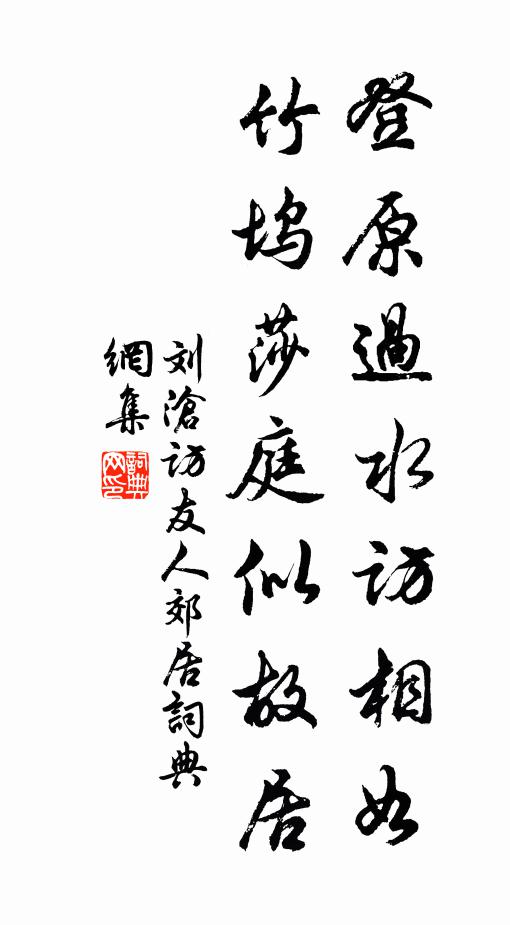 登原過水訪相如
竹塢莎庭似故居
刘滄訪友人郊居詞典
網集
詞典
网印